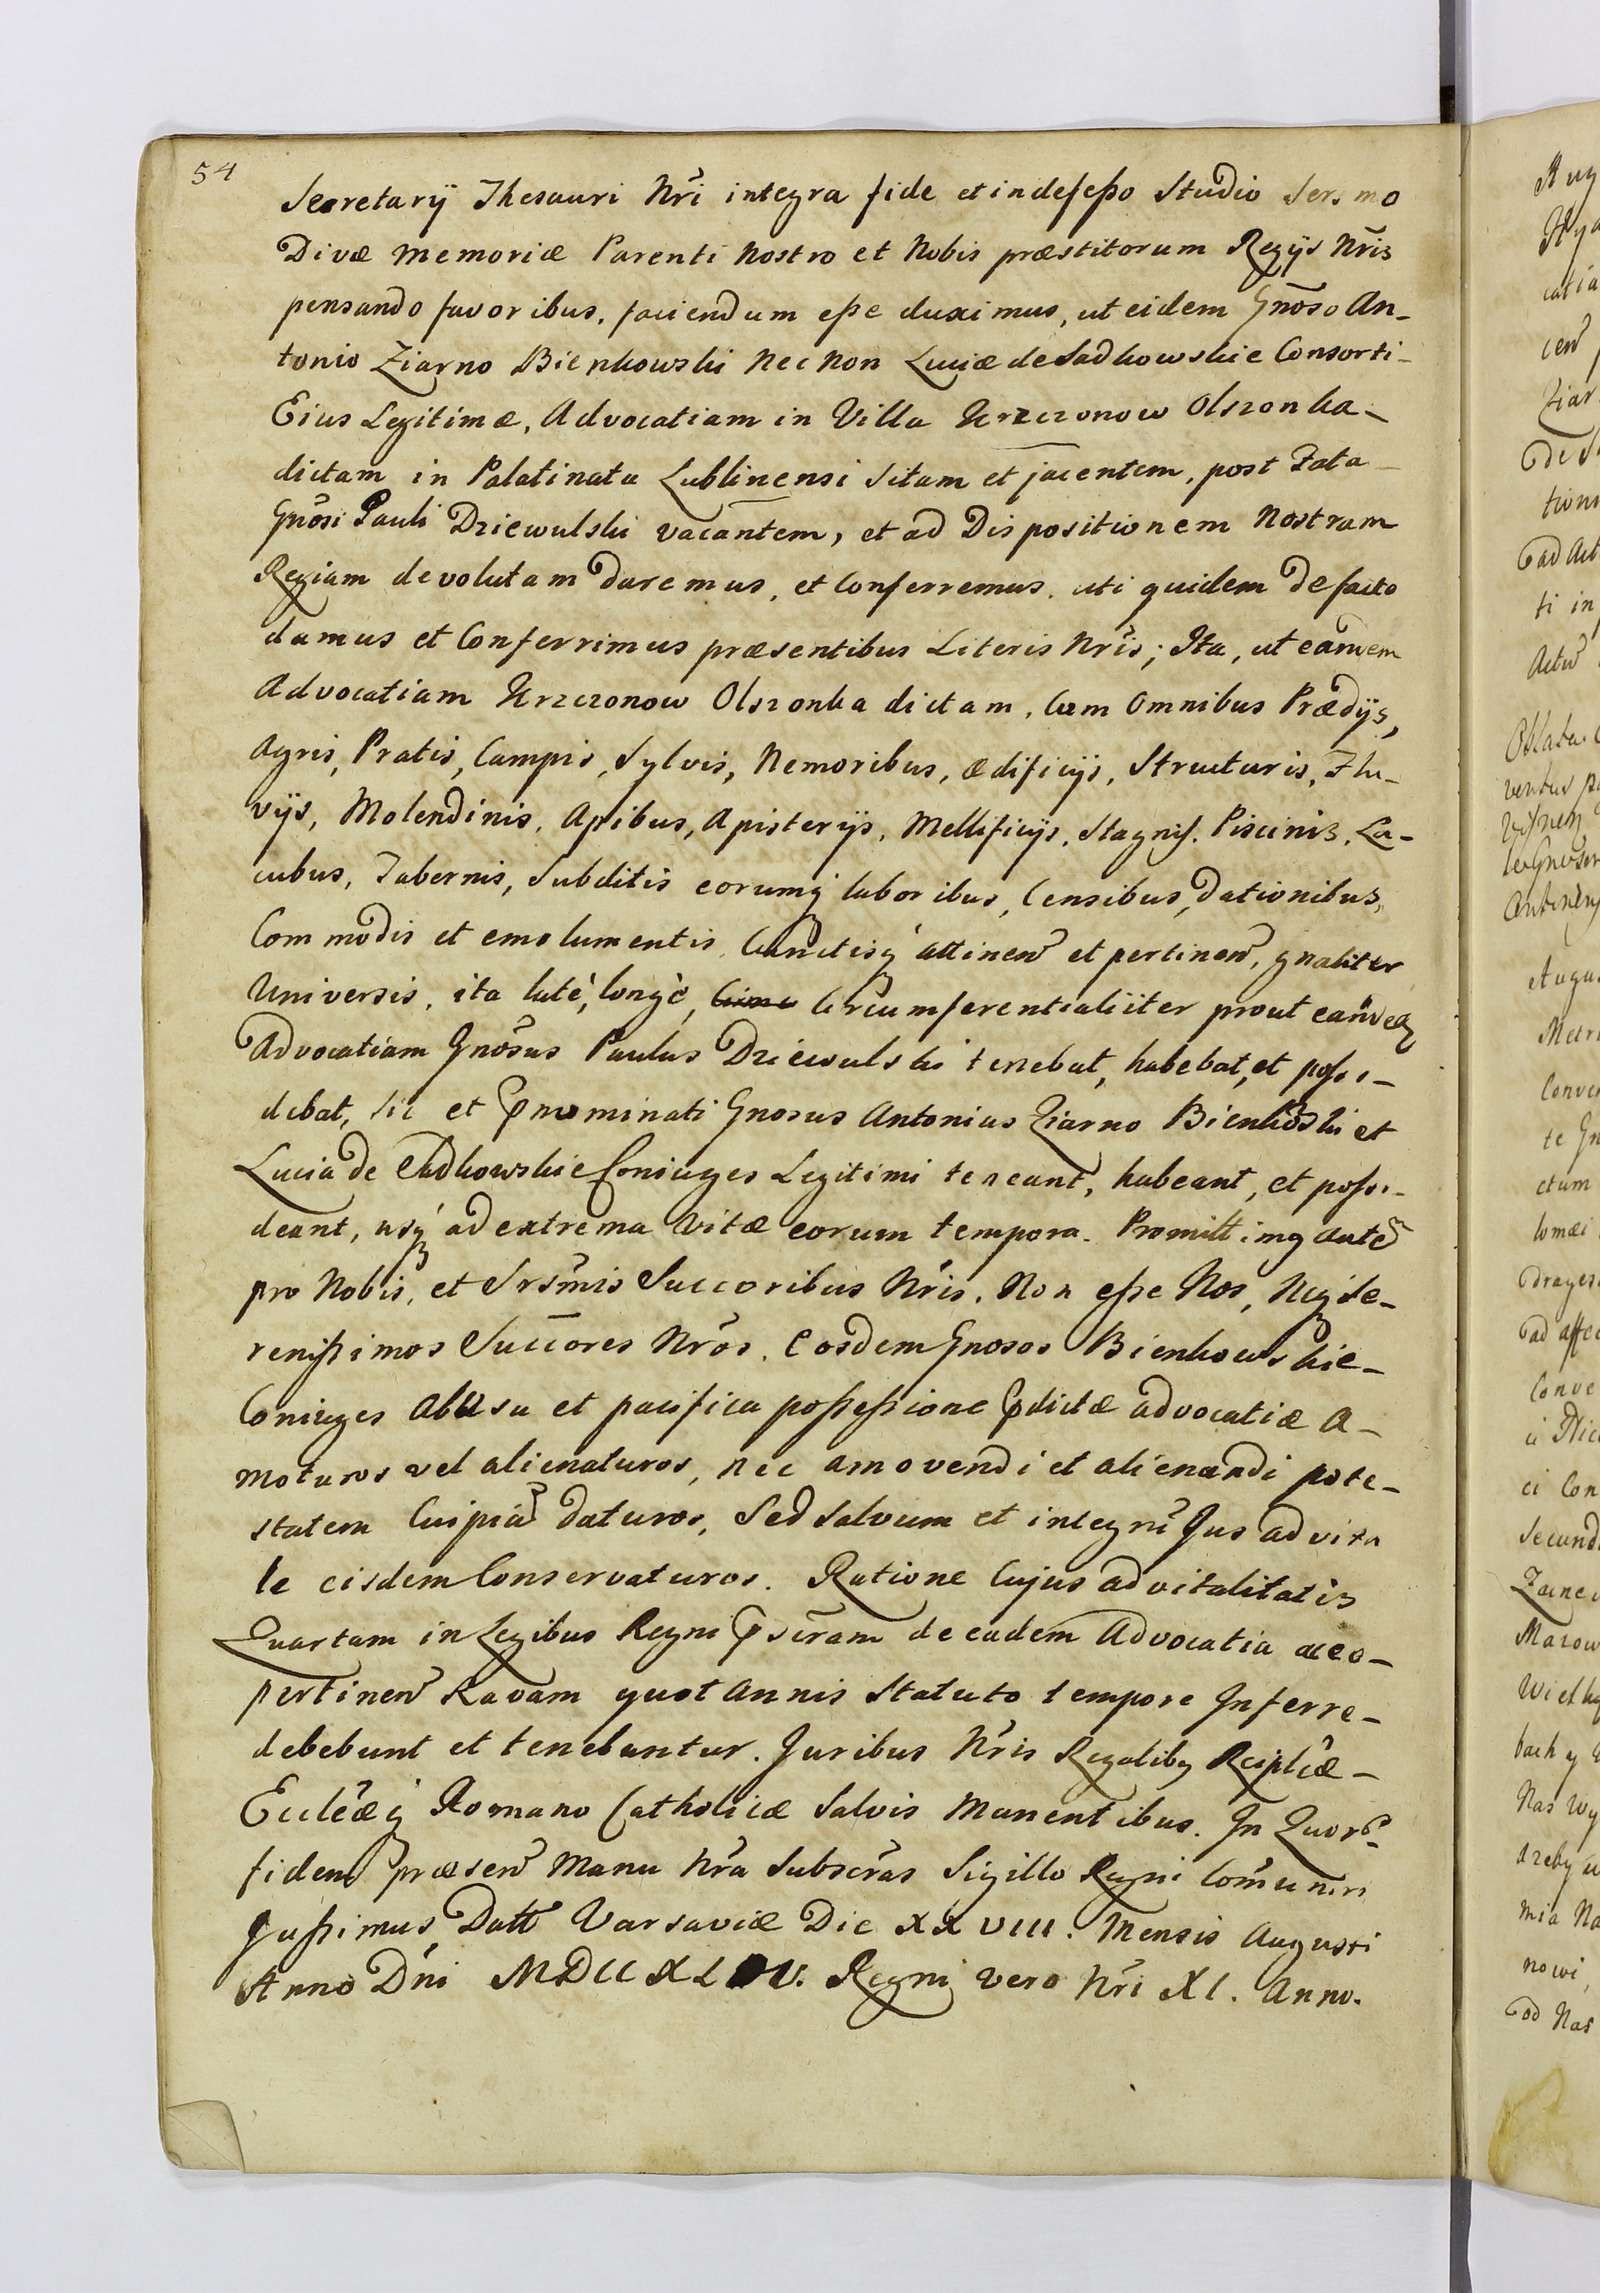 54
Secretarÿ Thesauri Nr̃i integra fide et indefeßo Studio Sersmo
Divæ memoriæ Parenti Nostro et Nobis præstitorum Regÿs Nr̃is
pensando favoribus, faciendum eße duximus, ut eidem Gnõso An-
tonio Ziarno Bienkowski nec non Luciæ de Sadkowskie Consorti-
Eius Legitimæ, Advocatiam in Villa Krzczonow Olszonka-
dictam in Palatinatu Lublinensi Sitam et jacentem, post Fata-
Gnõsi Pauli Dziewulski vacantem, et ad Dispositionem Nostram
Regiam devolutam daremus, et Conferremus. uti quidem de facto
damus et Conferrimus præsentibus Literis Nr̃is; Ita, ut eandem
Advocatiam Krzczonow Olszonka dictam, Cum Omnibus Prædÿs,
Agris, Pratis, Campis, Sylvis, Nemoribus, ædificÿs, Structuris, Flu-
vÿs, Molendinis, Apibus, Apisterÿs, Mellificÿs, Stagnis, Piscinis, La-
cubus, Tabernis, Subditis eorumq́ laboribus, Censibus, dationibus,
Commodis et emolumentis Cunctisq́ attinen̄ et pertinen̄, gnaliter
Universis, ita latè, longè, Circumferentialiiter prout eandem
Advocatiam Gnõsus Paulus Dziewulski tenebat, habebat, et possi-
debat, sic et p̄nominati Gnosus Antonius Ziarno Bienkowski et
Lucia de Sadkowskie Coniuges Legitimi teneant, habeant, et possi-
deant, usq́ ad extrema vitæ eorum tempora. Promittimg autẽ
pro Nobis, et Srsm̃is Succoribus Nr̃is, Non eße Nos, Neq́ Se-
renißimos Succ̄ores Nr̃os, Eosdem Gnosos Bienkowskie-
Coniuges ab Usu et pacifica poßeßione p̄dictæ advocatiæ a-
moturos vel alienaturos, nec amovendi et alienandi pote-
statem Cuipiã daturos, Sed Salvum et integrũ Jus advita
le eisdem Conservaturos. Ratione Cujus advitalitatis
Quartam in Legibus Regni p̄scr̃am de eadem Advocatia ac eo-
pertinen̄ Ravam quot annis Statuto tempore Inferre-
debebunt et tenebuntur. Juribus Nr̃is Regalibg Reiplicæ-
Eccleæq́ Romano Catholicæ Salvis Manentibus. In Quorũ-
fidem præsen̄ Manu Nr̃a Subscr̃as Sigillo Regni Com̃uniri
Jußimus. Datt Varsaviæ Die XXVIII. Mensis Augusti
Anno Dñi MDCCXLIV. Regni vero Nr̃i XI. Anno.